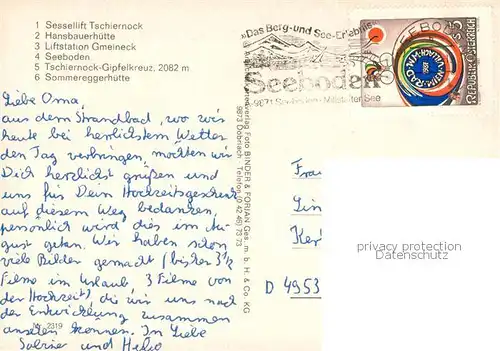 1 Sessellift Tschiernock
2 Hansbauerhütte
3 Liftstation Gmeineck
4 Seeboden
5 Tschiernock-Gipfelkreuz, 2082 m
6 Sommereggerhütte
Liebe Oma,
aus dem Strandbad, wo wir
heute bei herrlichstem Wetter
den Tag verbringen, möchten wir
Dich herzlichst grüßen und
uns für Dein Hochzeitsgeschenk
auf diesem Weg bedanken,
persönlich wird dies im Au-
gust getan. Wir haben schon
viele Bilder gemacht (bisher 3½
Filme im Urlaub, 3 Filme von
der Hochzeit), die wir uns nach
der Entwicklung zusammen
ansehen können. In Liebe
Sabine und
2319
Foto BINDER & FORIAN Ges. m. b. H. & Co. KG
9873 Döbriach - Telefon (0 42 46) 73 73
»Das Berg- und See-Erlebnis«
Seeboden
9871 Seeboden - Millstätter See
SEEBODEN
S 5
REPUBLIK ÖSTERREICH
Frau
D 4953
privacy protection
www.oldthing.de